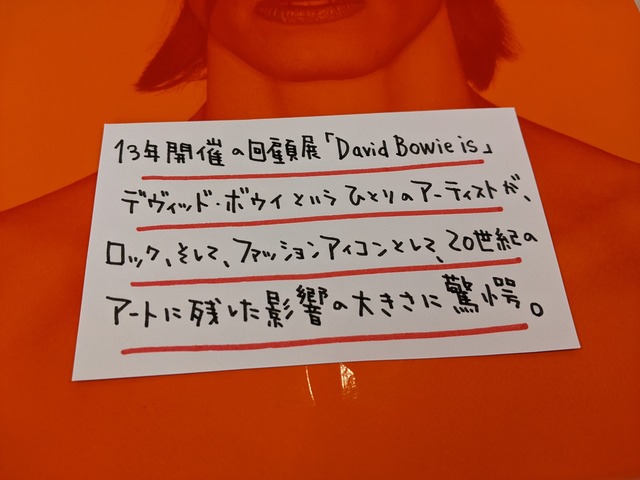 13年開催の回顧展「David Bowie is」
デヴィッド・ボウイというひとりのアーティストが、
ロック、そして、ファッションアイコンとして、20世紀の
アートに残した影響の大きさに驚愕。